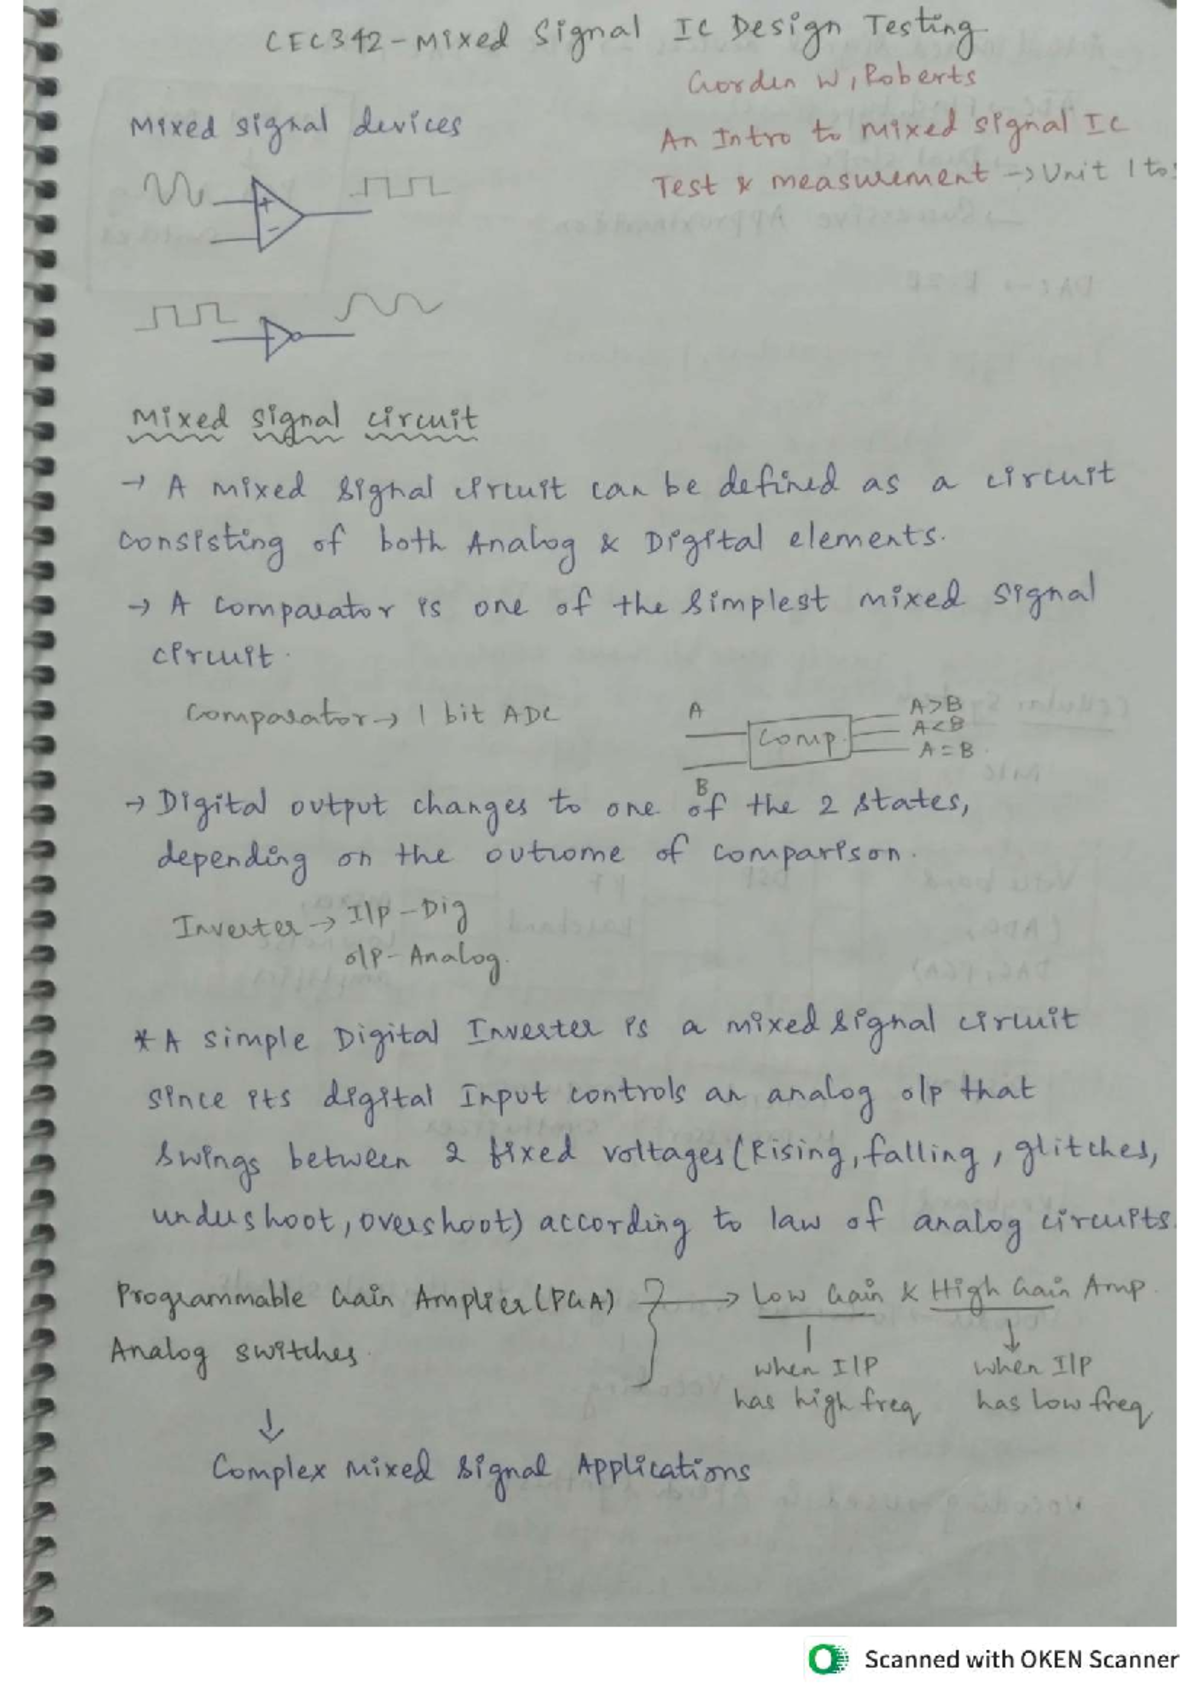 CEC342-Mixed Signal IC Design Testing
Gorden W, Roberts
Mixed signal devices
An Intro to mixed signal IC
Test & measurement -> Unit 1 to
Mixed signal circuit
→ A mixed signal circuit can be defined as a circuit
consisting of both Analog & Digital elements.
→ A comparator is one of the simplest mixed signal
circuit.
Comparator → 1 bit ADC
A
B
Comp.
A>B
A<B
A=B
→ Digital output changes to one of the 2 states,
depending on the outcome of comparison.
Inverter → I/p - Dig
o/p - Analog.
* A simple Digital Inverter is a mixed signal circuit
since its digital Input controls an analog o/p that
swings between 2 fixed voltages (Rising, falling, glitches,
undershoot, overshoot) according to law of analog circuits.
Programmable Gain Amplier (PGA) → Low Gain & High Gain Amp.
Analog switches.
when I/P has high freq
when I/P has low freq
↓
Complex Mixed Signal Applications
Scanned with OKEN Scanner